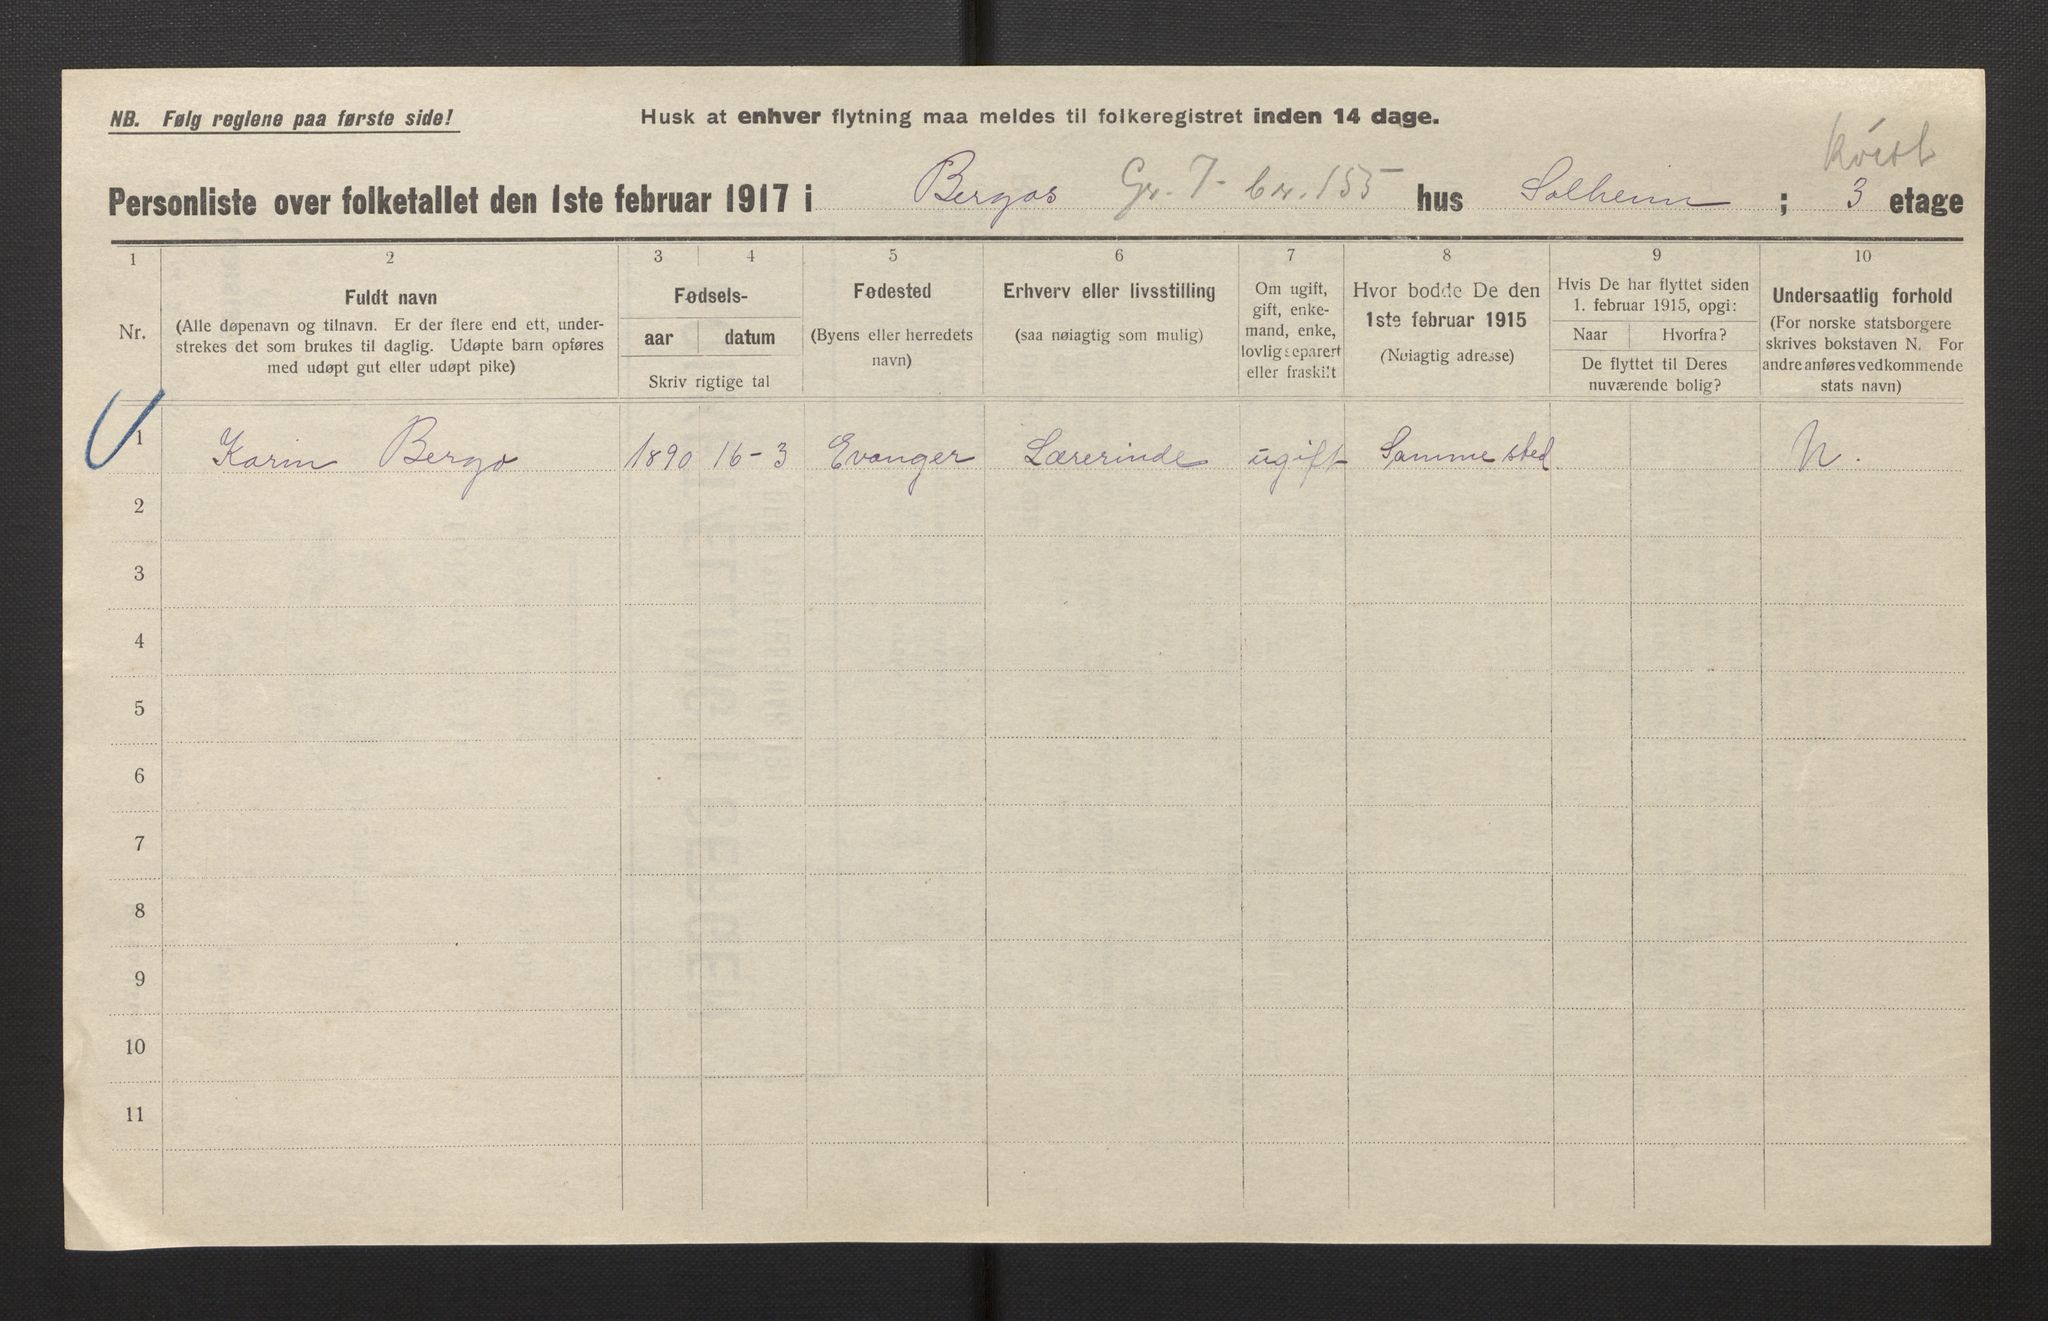 NB. Følg reglene paa første side!
Husk at enhver flytning maa meldes til folkeregistret inden 14 dage.
Kvist
Personliste over folketallet den 1ste februar 1917 i Bergos Gr. 7 - br. 155 hus Solheim ; 3 etage
1 2 3 4 5 6 7 8 9 10
Nr.
Fuldt navn
(Alle døpenavn og tilnavn. Er der flere end ett, under-
strekes det som brukes til daglig. Udøpte barn opføres
med udøpt gut eller udøpt pike)
Fødsels-
aar datum
Skriv rigtige tal
Fødested
(Byens eller herredets
navn)
Erhverv eller livsstilling
(saa nøiagtig som mulig)
Om ugift,
gift, enke-
mand, enke,
lovlig separert
eller fraskilt
Hvor bodde De den
1ste februar 1915
(Nøiagtig adresse)
Hvis De har flyttet siden
1. februar 1915, opgi:
Naar Hvorfra?
De flyttet til Deres
nuværende bolig?
Undersaatlig forhold
(For norske statsborgere
skrives bokstaven N. For
andre anføres vedkommende
stats navn)
1 Karin Bergo 1890 16-3 Evanger Lærerinde ugift Samme sted N.
2
3
4
5
6
7
8
9
10
11